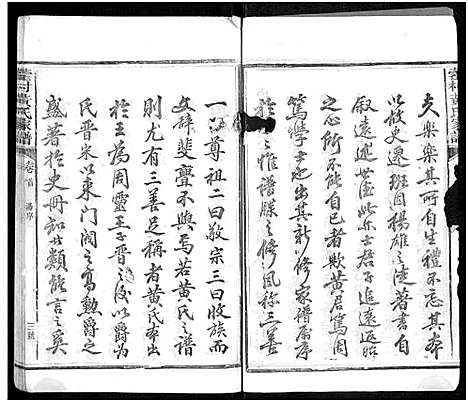 夫樂樂其所自生禮不忘其本
以故史遷班固揚雄之徒著書自
叙遠逮世德此亦士君子追遠返始
之心所不能自已者歟黃君篤周
篤學士也出其新修家譜屬序
於余惟譜牒之修風稱三善
一曰尊祖二曰敬宗三曰收族而
文辭斐亹不與焉若黃氏之譜
則尤有三善足稱者黃氏本出
於王為周靈王子晉之後以爵為
氏晉宋以來門閥之高勲爵之
盛著於史冊知世類能言之矣
黃氏家譜
卷首
湯序
三號